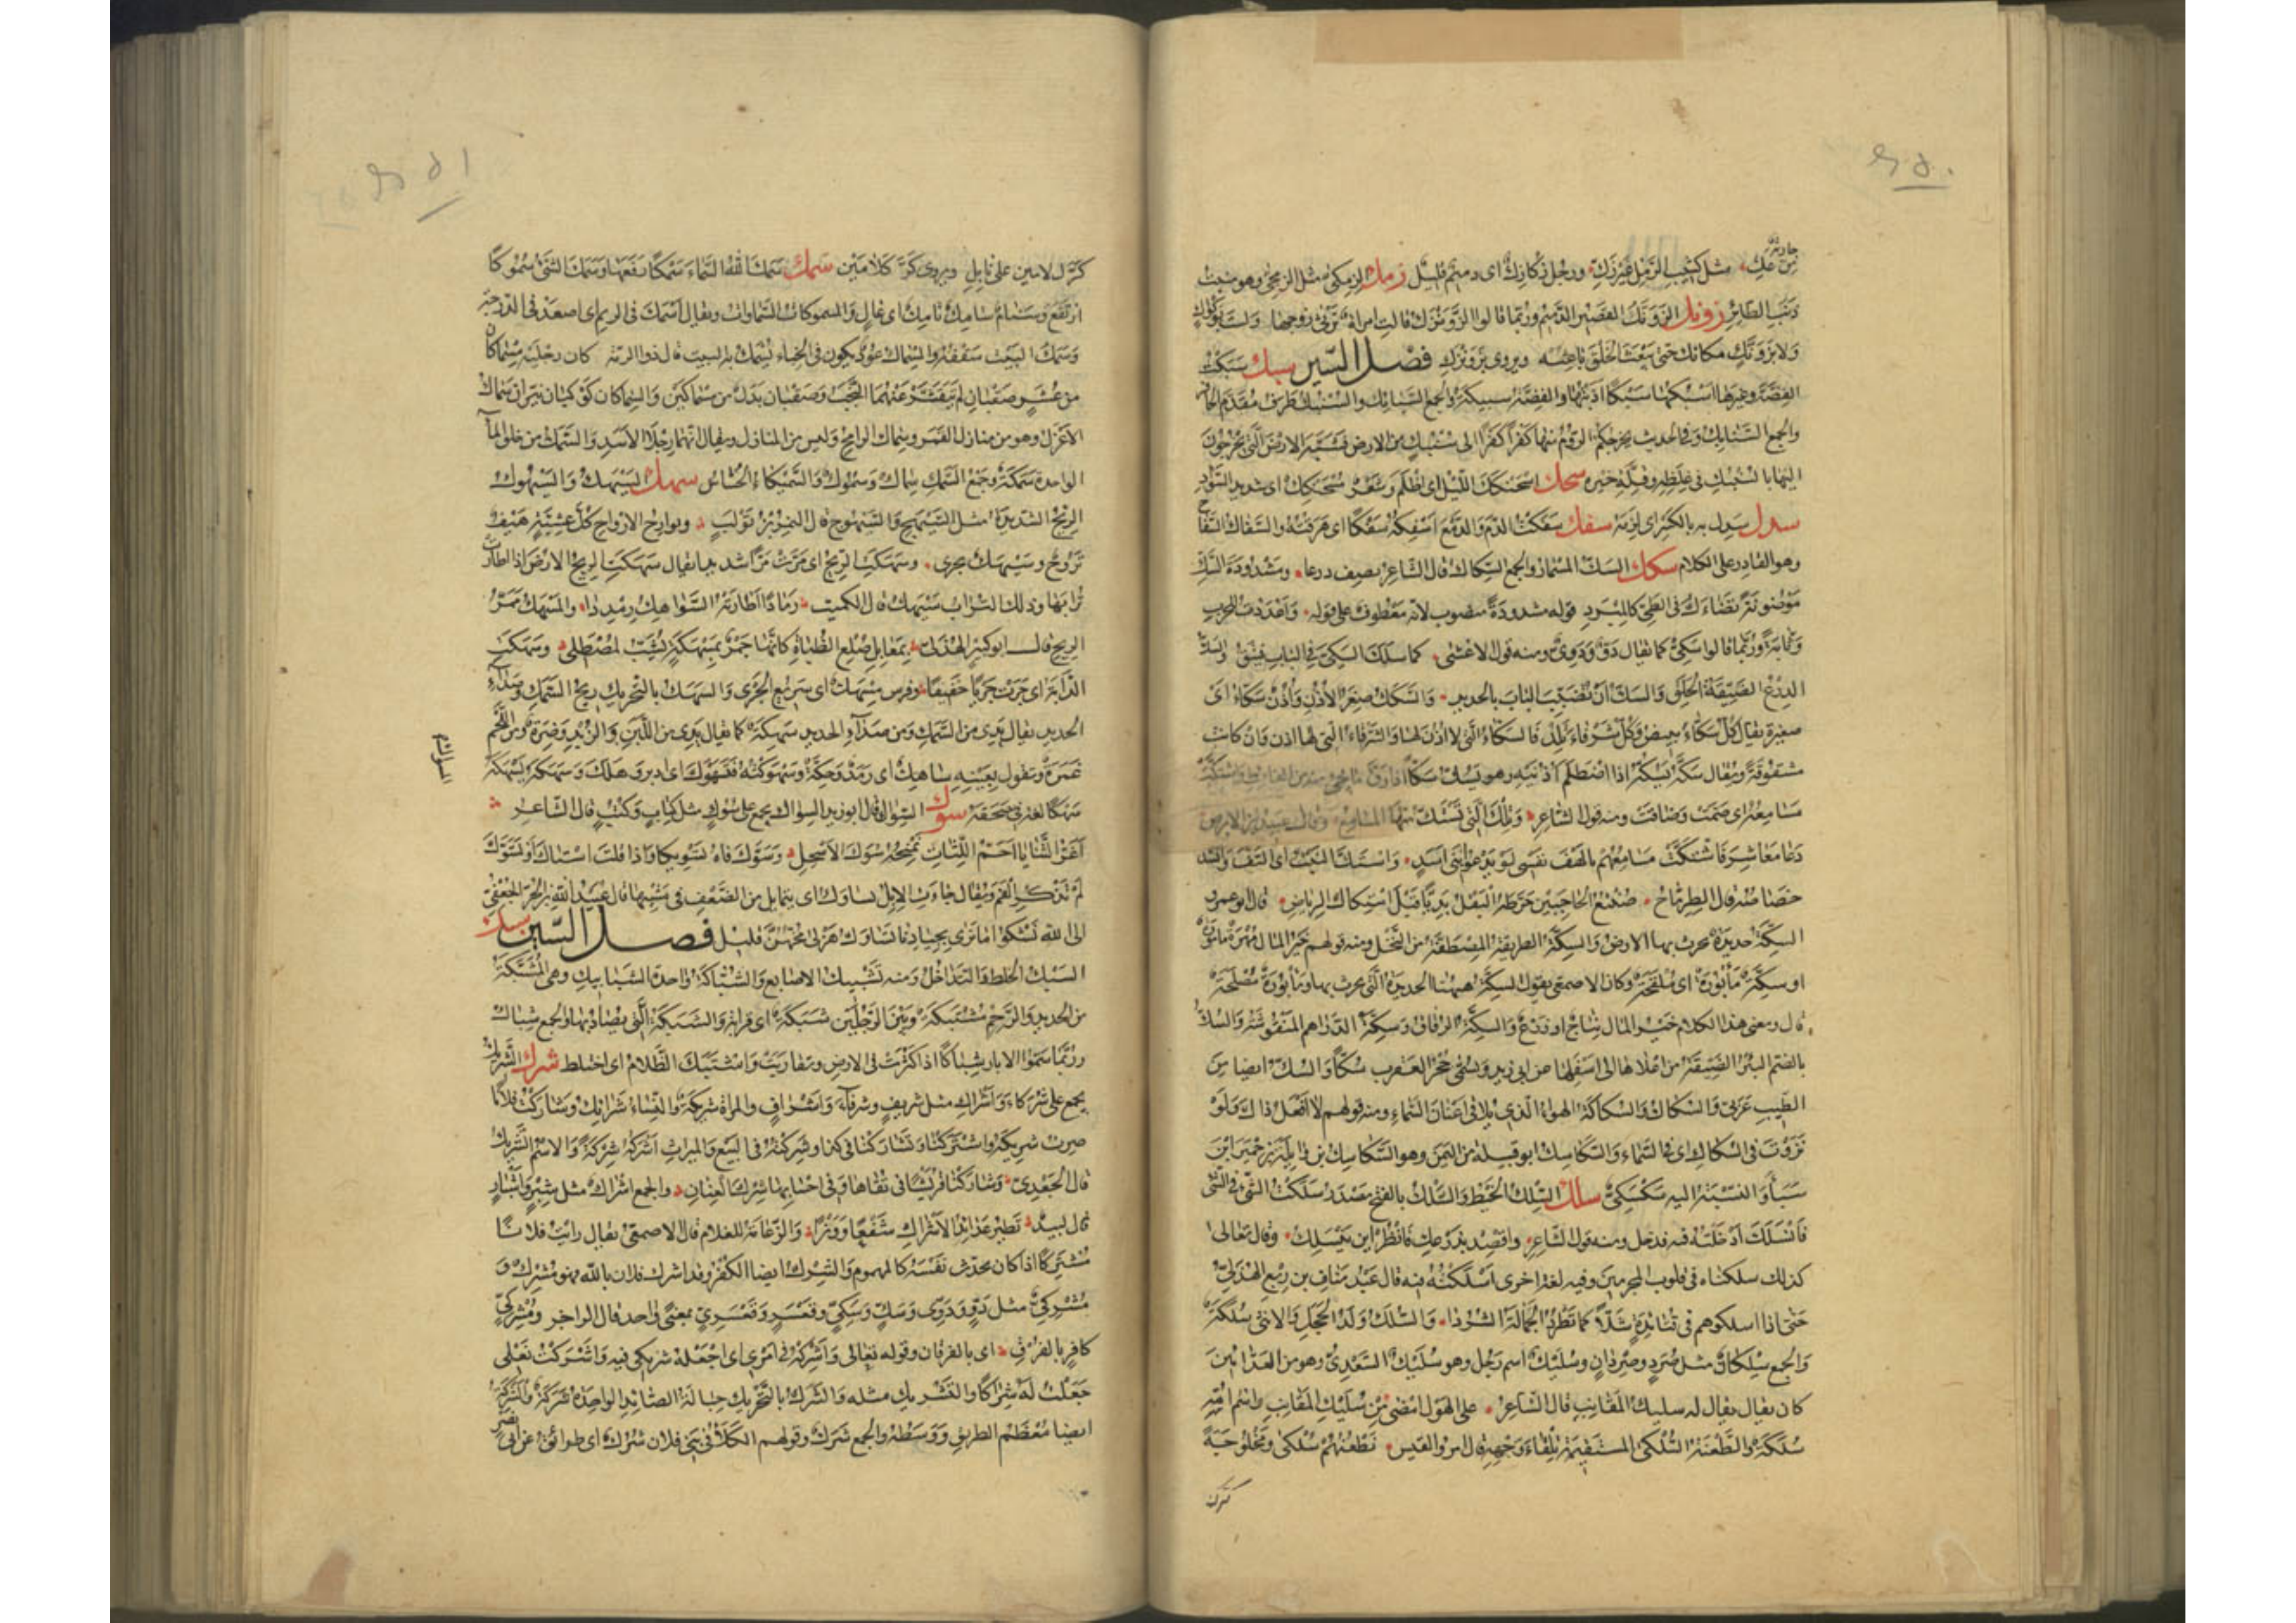 ٤٥٠
جارية
من عك مثل كثيب الرمل غير زك ورجل زكازك اى دميم قليل زمك الزمكى مثل الزمجى وهو منبت
ذنب الطائر زونك الزونك القصير الدميم وربما قالوا الزونزك قالت امراة ترثى زوجها ولست بوكواك
ولا بزونك مكانك حتى يبعث الخلق باعثه ويروى بزونزك فصل السين سبك سبكت
الفضة وغيرها اسبكها سبكا اذبتها والفضة سبيكة والجمع السبائك والسنبك طرف مقدم الحافر
والجمع السنابك وفى الحديث يخرجكم الروم منها كفرا كفرا الى سنبك من الارض فشبه الارض التى يخرجون
اليها بالسنبك فى غلظه وقلة خيره سحك اسحنكك الليل اى اظلم وشعر سحكوك اى شديد السواد
سدك سدك به بالكسر اى لزمه سفك سفكت الدم والدمع اسفكه سفكا اى هرقته والسفاك السفاح
وهو القادر على الكلام سكك السك المسمار والجمع السكاك قال الشاعر يصف درعا ومشدودة السك
موضونة تضاءل فى الطى كالمبرد قوله مشدودة منصوب لانه معطوف على قوله واعددت للحرب
وثابة وربما قالوا سكى كما يقال دو ودوى ومنه قول الاعشى كما سلك السكى فى الباب فيتق والسك
الدرع الضيقة الحلق والسك ان تضبب الباب بالحديد والسكك صغر الاذن واذن سكاء اى
صغيرة يقال كل سكاء تبيض وكل شرفاء تلد فالسكاء التى لا اذن لها والشرفاء التى لها اذن وان كانت
مشقوقة ويقال سكه يسكه اذا اصطلم اذنيه وهو يسك سكا اذا رق ما يجئ منه من الغائط واستكت
مسامعه اى صمت وضاقت ومنه قول الشاعر وتلك التى تستك منها المسامع وقال عبيد بن الابرص
دعا معاشر فاستكت مسامعهم يا لهف نفسى لو يدعو بنى اسد واستك النبت اى التف وانسد
خصاصه قال الطرماح صنتع الحاجبين خرطه البقل بديا قبل استكاك الرياض قال ابو عمرو
السكة حديدة يحرث بها الارض والسكة الطريقة المصطفة من النخل ومنه قولهم خير المال مهرة مامورة
او سكة مأبورة اى ملقحة وكان الاصمعى يقول السكة ههنا الحديدة التى يحرث بها ومأبورة مصلحة
قال ومعنى هذا الكلام خير المال نتاج او زرع والسكة الزقاق وسكة الدراهم المنقوشة والسك
بالضم البئر الضيقة من اعلاها الى اسفلها عن ابى زيد ويسمى جحر العقرب سكا والسك ايضا من
الطيب عربى والسكاك والسكاكة الهواء الذى يلاقى اعنان السماء ومنه قولهم لا افعل ذاك ولو
نزوت فى السكاك اى فى السماء والسكاسك ابو قبيلة من اليمن وهو السكاسك بن وائلة بن حمير ابن
سبا والنسبة اليه سكسكى سلك السلك الخيط والسلك بالفتح مصدر سلكت الشئ فى الشئ
فانسلك ادخلته فيه فدخل ومنه قول الشاعر واقصد بذرعك فانظر اين تنسلك وقال تعالى
كذلك سلكناه فى قلوب المجرمين وفيه لغة اخرى اسلكته فيه قال عبد مناف بن ربع الهذلى
حتى اذا اسلكوهم فى قتائدة شلا كما تطرد الجمالة الشردا والسلك ولد الحجل والانثى سلكة
والجمع سلكان مثل صرد وصردان وسليك اسم رجل وهو سليك السعدى وهو من العدائين
كان يقال يقال له سليك المقانب قال الشاعر على الهول امضى من سليك المقانب واسم امه
سلكة والطعنة السلكى المستقيمة تلقاء وجهه قال امرؤ القيس نطعنهم سلكى ومخلوجة
كرك
٤٥١
كرك لامين على نابل ويروى كر كلامين سمك سمك الله السماء سمكا رفعها وسمك الشئ سموكا
ارتفع وسنام سامك تامك اى عال والمسموكات السماوات ويقال اسمك فى الريم اى اصعد فى الدرجة
وسمك البيت سقفه والسماك عود يكون فى الخباء يسمك به البيت قال ذو الرمة كان رجليه مسماكان
من عشر صقبان لم يتقشر عنهما النجب وصقبان بدل من مسماكين والسماكان كوكبان نيران سماك
الاعزل وهو من منازل القمر وسماك الرامح وليس من المنازل ويقال انهما رجلا الاسد والسمك من خلق الماء
الواحدة سمكة وجمع السمك سماك وسموك والسميكاء الحساس سهك السيهك والسيهوك
الريح الشديدة مثل السيهج والسيهوج قال النمر بن تولب وبوارح الارواح كل عشية هيف
تروح وسيهك تجرى وسهكت الريح اى مرت مرا شديدا يقال سهكت الريح الارض اذا اطارت
ترابها وذلك التراب سيهك قال الكميت رمادا اطارته السواهك رمددا والمسهك ممر
الريح قال ابو كبير الهذلى بمعابل صلع الظباة كانها جمر بمسهكة تشب لمصطلى وسهكت
الدابة اى جرت جريا خفيفا وفرس مسهك اى سريع الجرى والسهك بالتحريك ريح السمك وصداء
الحديد يقال يدى من السمك ومن صداء الحديد سهكة كما يقال يدى من اللبن والزبد وضرة ومن اللحم
غمرة وتقول بعينه ساهك اى رمد وحكة وسهوكته فتسهوك اى ادبر وهلك وسهكه يسهكه
السوائم
سهكا لغة فى سحقه سوك السواك قال ابو زيد السواك يجمع على سوك مثل كتاب وكتب قال الشاعر
اغر الثنايا احم اللثات تمنحه سوك الاسحل وسوك فاه تسويكا واذا قلت استاك او تسوك
لم تذكر الفم ويقال جاءت الابل تساوك اى تمايل من الضعف فى مشيها قال عبيد الله بن الحر الجعفى
الى الله نشكو ما نرى بجيادنا تساوك هزلى مخهن قليل فصل الشين شبك
الشبك الخلط والتداخل ومنه تشبيك الاصابع والشباكة واحدة الشبابيك وهى المشبكة
من الحديد والرحم مشتبكة وبين الرجلين شبكة اى قرابة والشبكة التى يصاد بها والجمع شباك
وربما سموا الابار شباكا اذا كثرت فى الارض وتقاربت واشتبك الظلام اى اختلط شرك الشريك
يجمع على شركاء واشراك مثل شريف وشرفاء واشراف والمراة شريكة والنساء شرائك وشاركت فلانا
صرت شريكه واشتركنا وتشاركنا فى كذا وشركته فى البيع والميراث اشركه شركة والاسم الشرك
قال الجعدى وشاركنا قريشا فى تقاها وفى احسابها شرك العنان والجمع اشراك مثل شبر واشبار
قال لبيد تطير عدائد الاشراك شفعا ووترا والزعامة للغلام قال الاصمعى يقال رايت فلانا
مشتركا اذا كان يحدث نفسه كالمهموم والشرك ايضا الكفر وقد اشرك فلان بالله فهو مشرك و
مشركى مثل دو ودوى وسك وسكى وقعسر وقعسرى بمعنى واحد قال الراجز ومشركى
كافر بالفرق اى بالفرقان وقوله تعالى واشركه فى امرى اى اجعله شريكى فيه واشركت نعلى
جعلت له شراكا والتشريك مثله والشرك بالتحريك حبالة الصائد الواحدة شركة والشركة
ايضا معظم الطريق ووسطه والجمع شرك وقولهم الكلأ فى بنى فلان شرك اى طرائق عن ابى نصر